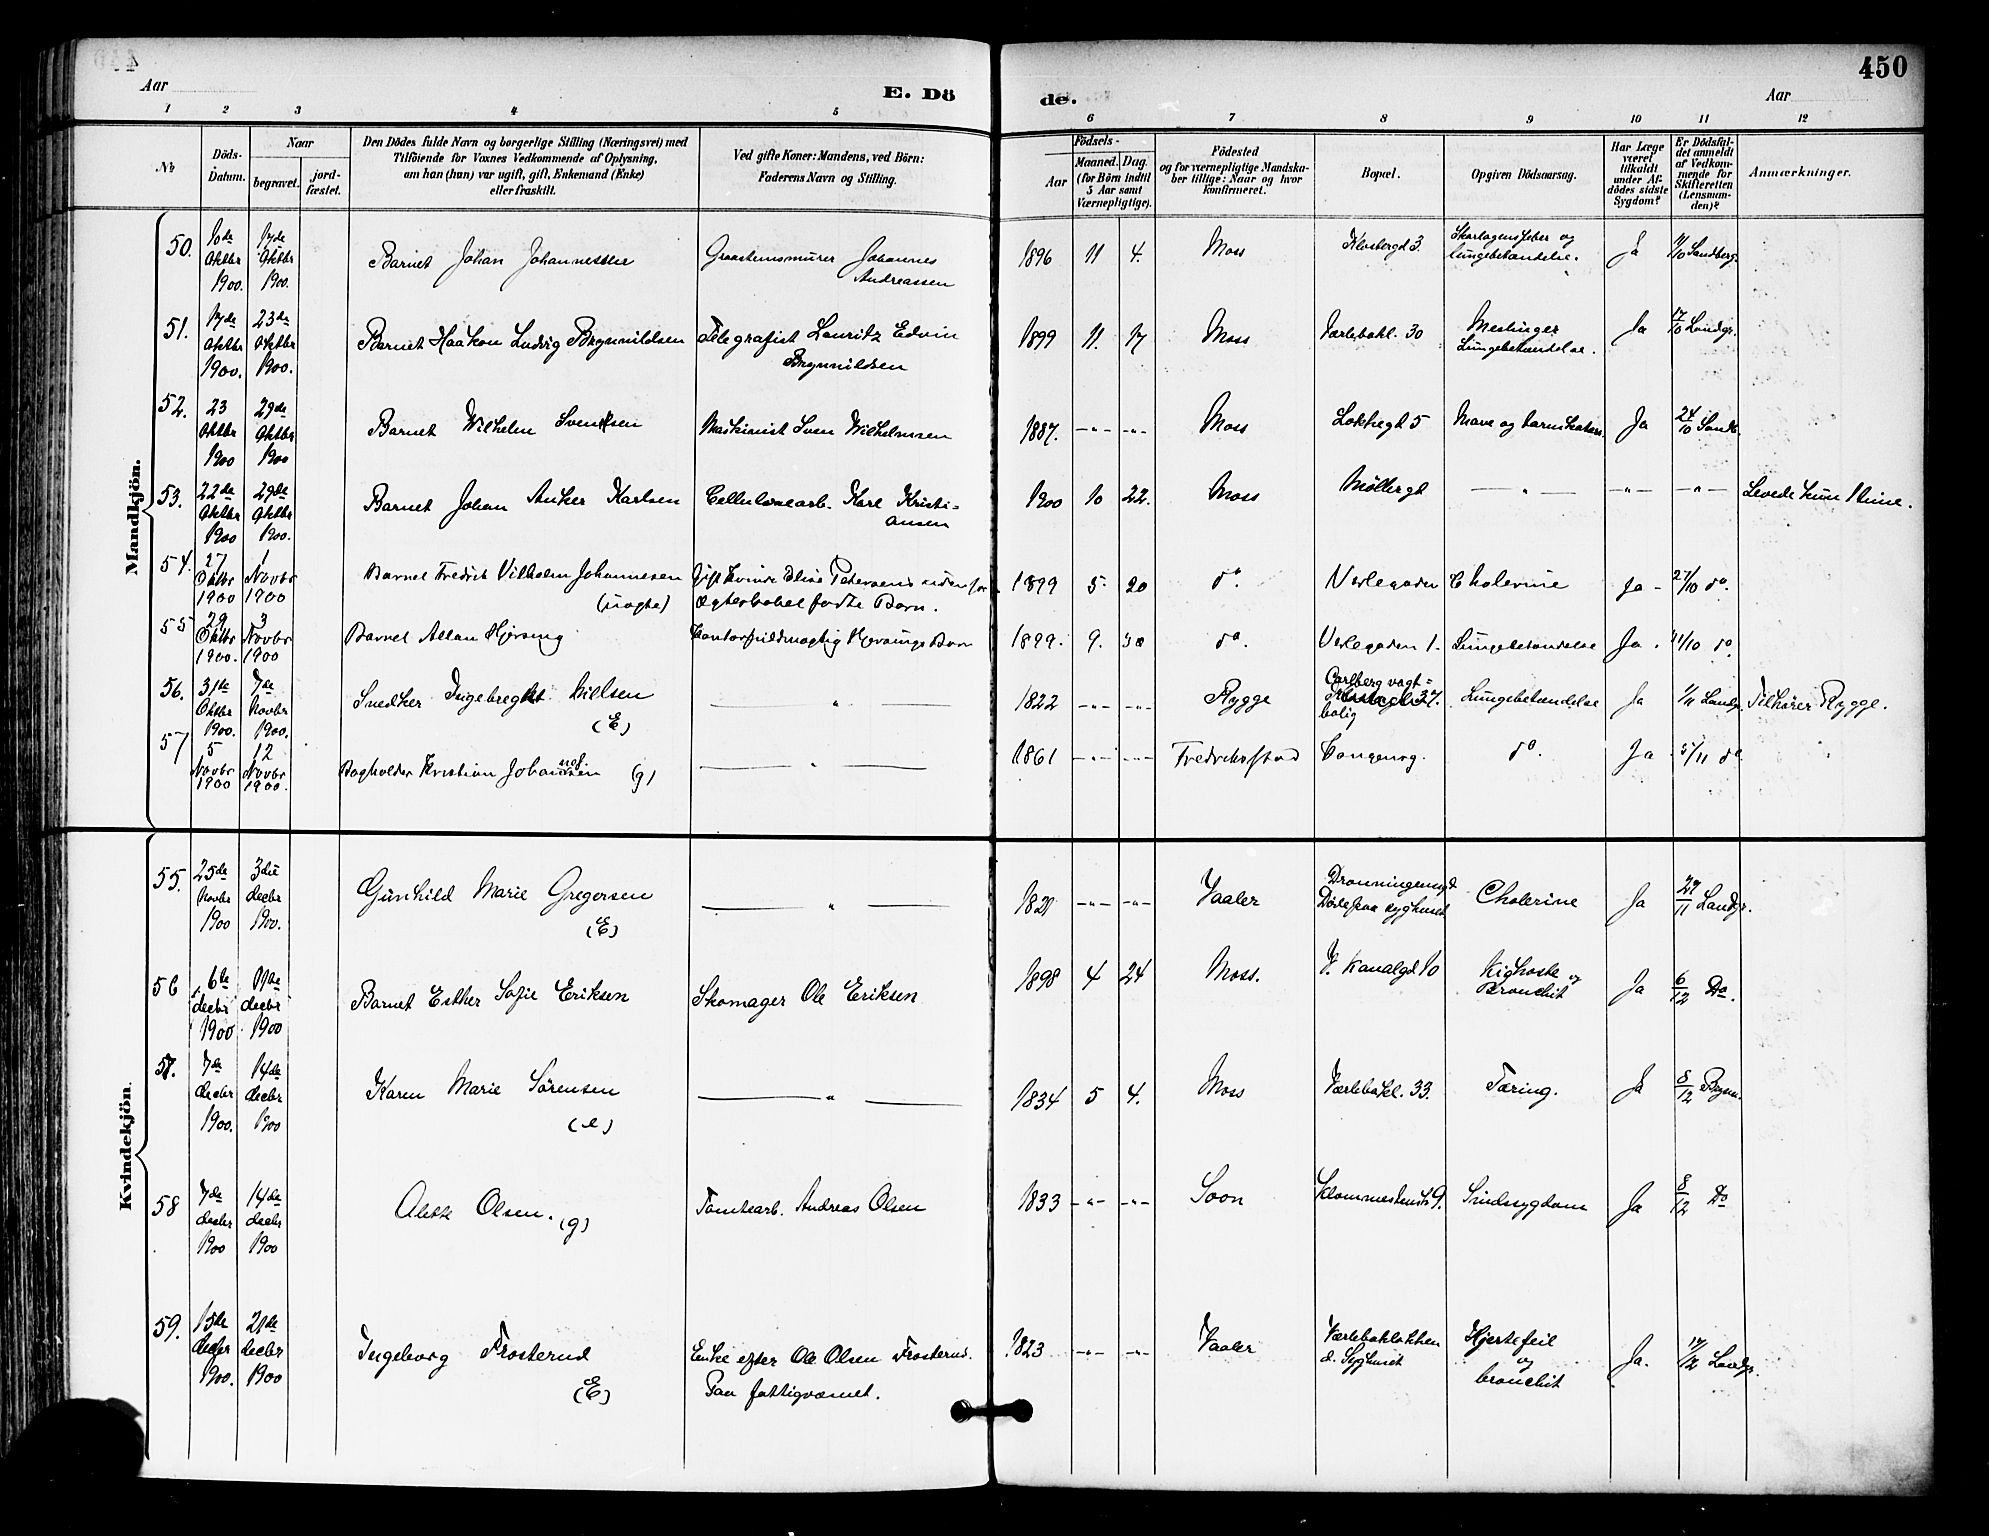 450
Aar
E. Dö
de.
Aar
1 2 3 4 5 6 7 8 9 10 11 12
No
Döds-
Datum.
Naar
begravet.
jord-
fæstet.
Den Dödes fulde Navn og borgerlige Stilling (Næringsvei) med
Tilföiende for Voxnes Vedkommende af Oplysning,
om han (hun) var ugift, gift, Enkemand (Enke)
eller fraskilt.
Ved gifte Koner: Mandens, ved Börn:
Faderens Navn og Stilling.
Födsels-
Aar
Maaned. Dag.
(for Börn indtil
5 Aar samt
Værnepligtige).
Födested
og for værnepligtige Mandska-
ber tillige: Naar og hvor
konfirmeret.
Bopæl.
Opgiven Dödsaarsag.
Har Læge
været
tilkaldt
under Af-
dödes sidste
Sygdom?
Er Dödsfal-
det anmeldt
af Vedkom-
mende for
Skifteretten
(Lensman-
den)?
Anmærkninger.
Mandkjön.
50.
10de
Oktbr
1900.
17de
Oktbr
1900.
Barnet Johan Johannessen
Graastensmurer Johannes
Andreassen
1896 11 4.
Moss
Klostergd 3.
Skarlagensfeber og
lungebetændelse.
Ja
11/10 Sandberg
51.
17de
Oktbr
1900.
23de
Oktbr
1900.
Barnet Haakon Ludvig Brynnildsen
Telegrafist Lauritz Edvin
Brynnildsen
1899 11. 17
Moss
Værlebakl. 30
Meslinger
Lungebetændelse.
Ja
17/10 Landgr.
52.
23
Oktbr
1900
29de
Oktbr
1900
Barnet Wilhelm Svendsen
Maskinist Sven Wilhelmsen
1887. -"- -"-
Moss
Loktegd 5
Mave og tarmkatarr.
Ja
24/10 Sandb.
53.
22de
Oktbr
1900
29de
Oktbr
1900.
Barnet Johan Anker Karlsen
Cellulosearb. Karl Kristi=
ansen
1900 10 22.
Moss
Møllergd
— " — -"- -"-
Levede kun 1 time.
54.
27
Oktbr
1900
1
Novbr
1900
Barnet Fredrik Vilhelm Johannesen
(uægte)
Gift kvinde Elise Petersens udenfor
ægteskabet fødte Barn.
1899 5. 20
do.
Verlegaden
Cholerine
Ja -
27/10 do.
55
29
Oktbr
1900.
3
Novbr
1900
Barnet Allan Hjørsing
Kontorfuldmægtig Hjørsings Barn
1899. 9. 30
do.
Verlegaden 1.
Lungebetændelse
Ja .
31/10 do
56.
31te
Oktbr
1900.
7de
Novbr
1900.
Snedker Ingebregt Nielsen
(E)
— " —
1822 -"- -"-
Rygge
Carlberg vogt=
bolig
Lungebetændelse
Ja
1/11 Landgr.
Tilhører Rygge.
57
5
Novbr
1900
12
Novbr
1900.
Bogholder Kristian Johannesen (g)
— " —
1861 -"- -"-
Fredrikstad
Cangeneg.
do.
Ja
5/11 do
Kvindekjön.
55.
25de
Novbr
1900
3die
decbr
1900.
Gunhild Marie Gregersen
(E)
— " —
1821 -"- -"-
Vaaler
Dronningensgd
Døde paa syghuset
Cholerine
Ja
27/11 Landgr.
56
6te
decbr
1900
11te
decbr
1900
Barnet Esther Sofie Eriksen
Skomager Ole Eriksen
1898 4 24
Moss.
V. Kanalgd 10
Kighoste og
Bronchit
Ja
6/12 Do.
57.
7de
decbr
1900.
14de
decbr
1900
Karen Marie Sørensen
(e)
— " —
1834 5 4.
Moss
Værlebakl. 33.
Tæring.
Ja
8/12 Brynn.
58
7de
decbr
1900
14de
decbr
1900
Alette Olsen. (g)
Tomtearb. Andreas Olsen
1833 -"- -"-
Soon
Sindssygdom
Ja
8/12 Do
59.
15de
decbr
1900.
21de
decbr
1900
Ingeborg Frosterud
(E)
Enke efter Ole Olsen Frosterud.
Paa fattigvæsnet.
1823 -"- -"-
Vaaler
Værlebakløkken
d. Syghuset
Hjertefeil
og
bronchit
Ja.
17/12 Landgr.